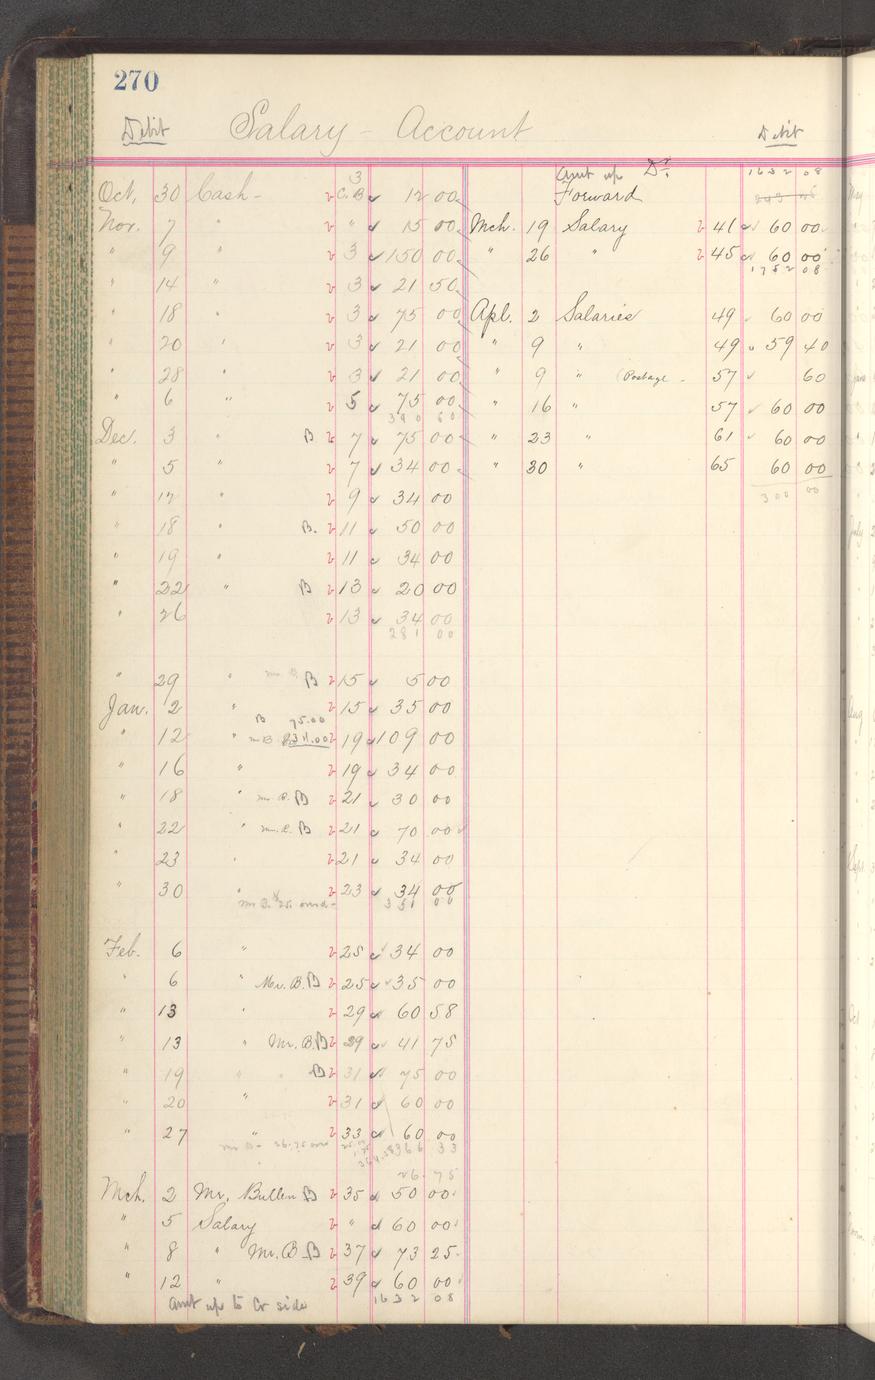 270
Debit Salary - Account
Oct, 30 Cash - 3 C.B 12 00
Nov. 7 " " 15 00
" 9 " 3 150 00
" 14 " 3 21 50
" 18 " 3 75 00
" 20 " 3 21 00
" 28 " 3 21 00
" 6 " 5 75 00
390 60
Dec. 3 " B 7 75 00
" 5 " 7 34 00
" 12 " 9 34 00
" 18 " B. 11 50 00
" 19 " 11 34 00
" 22 " B 13 20 00
" 26 13 34 00
281 00
" 29 " B 15 5 00
Jan. 2 " 15 35 00
B 75.00
" 12 " 19 109 00
" 16 " 19 34 00
" 18 " Mr. B. B 21 30 00
" 22 " Mr. B. B 21 70 00
" 23 " 21 34 00
" 30 " 23 34 00
351 00
Feb. 6 " 25 34 00
" 6 " Mr. B. B 25 35 00
" 13 " 29 60 58
" 13 " Mr. B. B 29 41 75
" 19 " B 31 75 00
" 20 " 31 60 00
" 27 " 33 60 00
366 33
26.75
Mch. 2 Mr. Bullen B 35 50 00
" 5 Salary " 60 00
" 8 " Mr. B B 37 73 25
" 12 " 39 60 00
Amt up to Cr side 1632 08
Debit
Amt up Dr. 1632 08
Forward
Mch. 19 Salary 41 60 00
" 26 " 45 60 00
1752 08
Apl. 2 Salaries 49 60 00
" 9 " 49 59 40
" 9 " (Postage 57 60
" 16 " 57 60 00
" 23 " 61 60 00
" 30 " 65 60 00
300 00